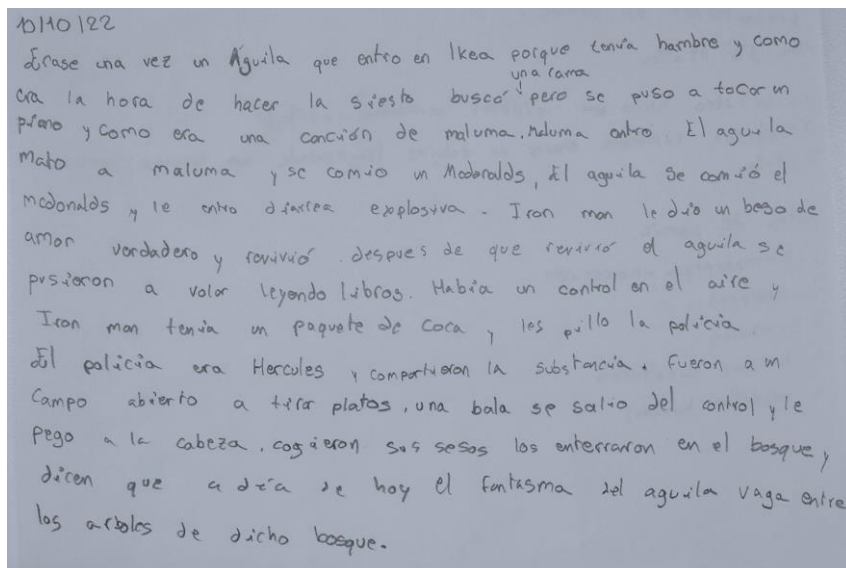 10/10/22
Erase una vez un Águila que entro en Ikea porque tenía hambre y como
una cama
era la hora de hacer la siesta buscó pero se puso a tocar un
piano y como era una canción de maluma. Maluma entro El aguila
Mato a maluma y se comio un Mcdonalds, El aguila se comió el
mcdonalds y le entro diarrea explosiva. Iron man le dio un beso de
amor verdadero y revivió. despues de que revivió el aguila se
pusieron a volar leyendo libros. Había un control en el aire y
Iron man tenia un paquete de coca y les pillo la policia
El policia era Hercules y compartieron la substancia. fueron a un
Campo abierto a tirar platos, una bala se salio del control y le
pego a la cabeza, cogieron sus sesos los enterraron en el bosque y
dicen que a día de hoy el fantasma del aguila vaga entre
los arboles de dicho bosque.